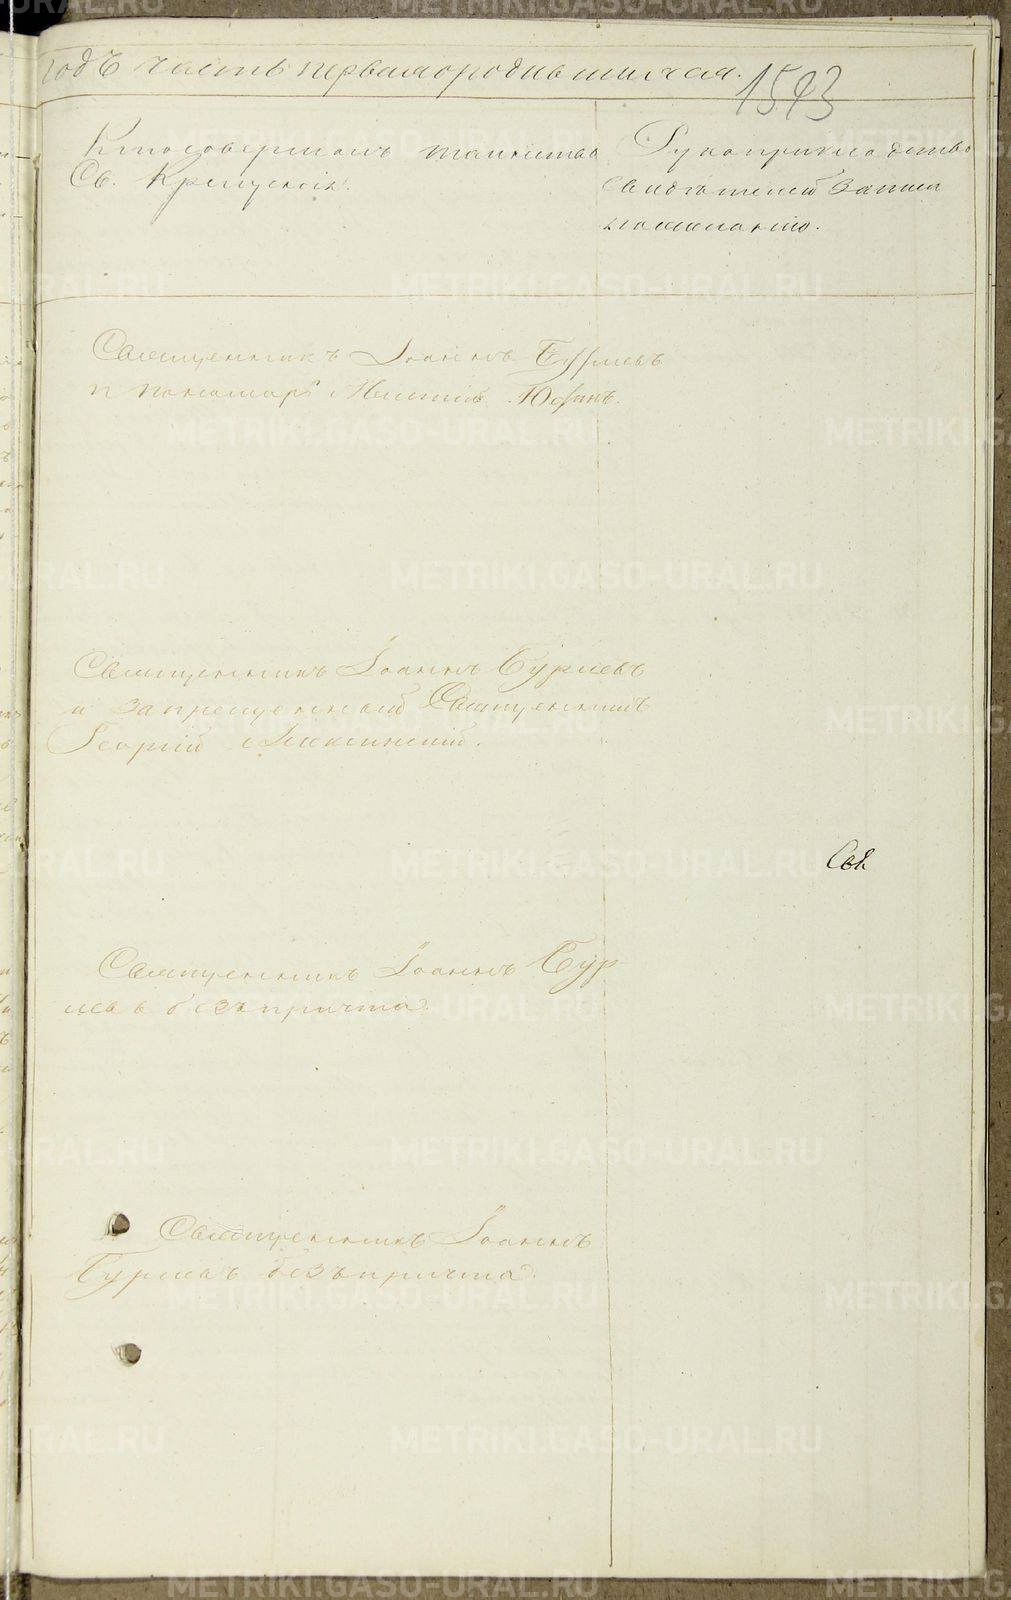 годъ часть перваяородившихся.
1593
Ктосовершалъ таинство
Св. Крещенія.
Рукоприкладство
свидѣтелей записи
пожеланію.
Священникъ Іоаннъ Бурлевъ
и пономарь Юфинъ.
Священникъ Іоаннъ Бурлевъ
и запрещенный Священникъ
Георгій
Свя
Священникъ Іоаннъ Бур
левъ безъпричта.
Священникъ Іоаннъ
Бурлевъ безъпричта.
METRIKI.GASO-URAL.RU